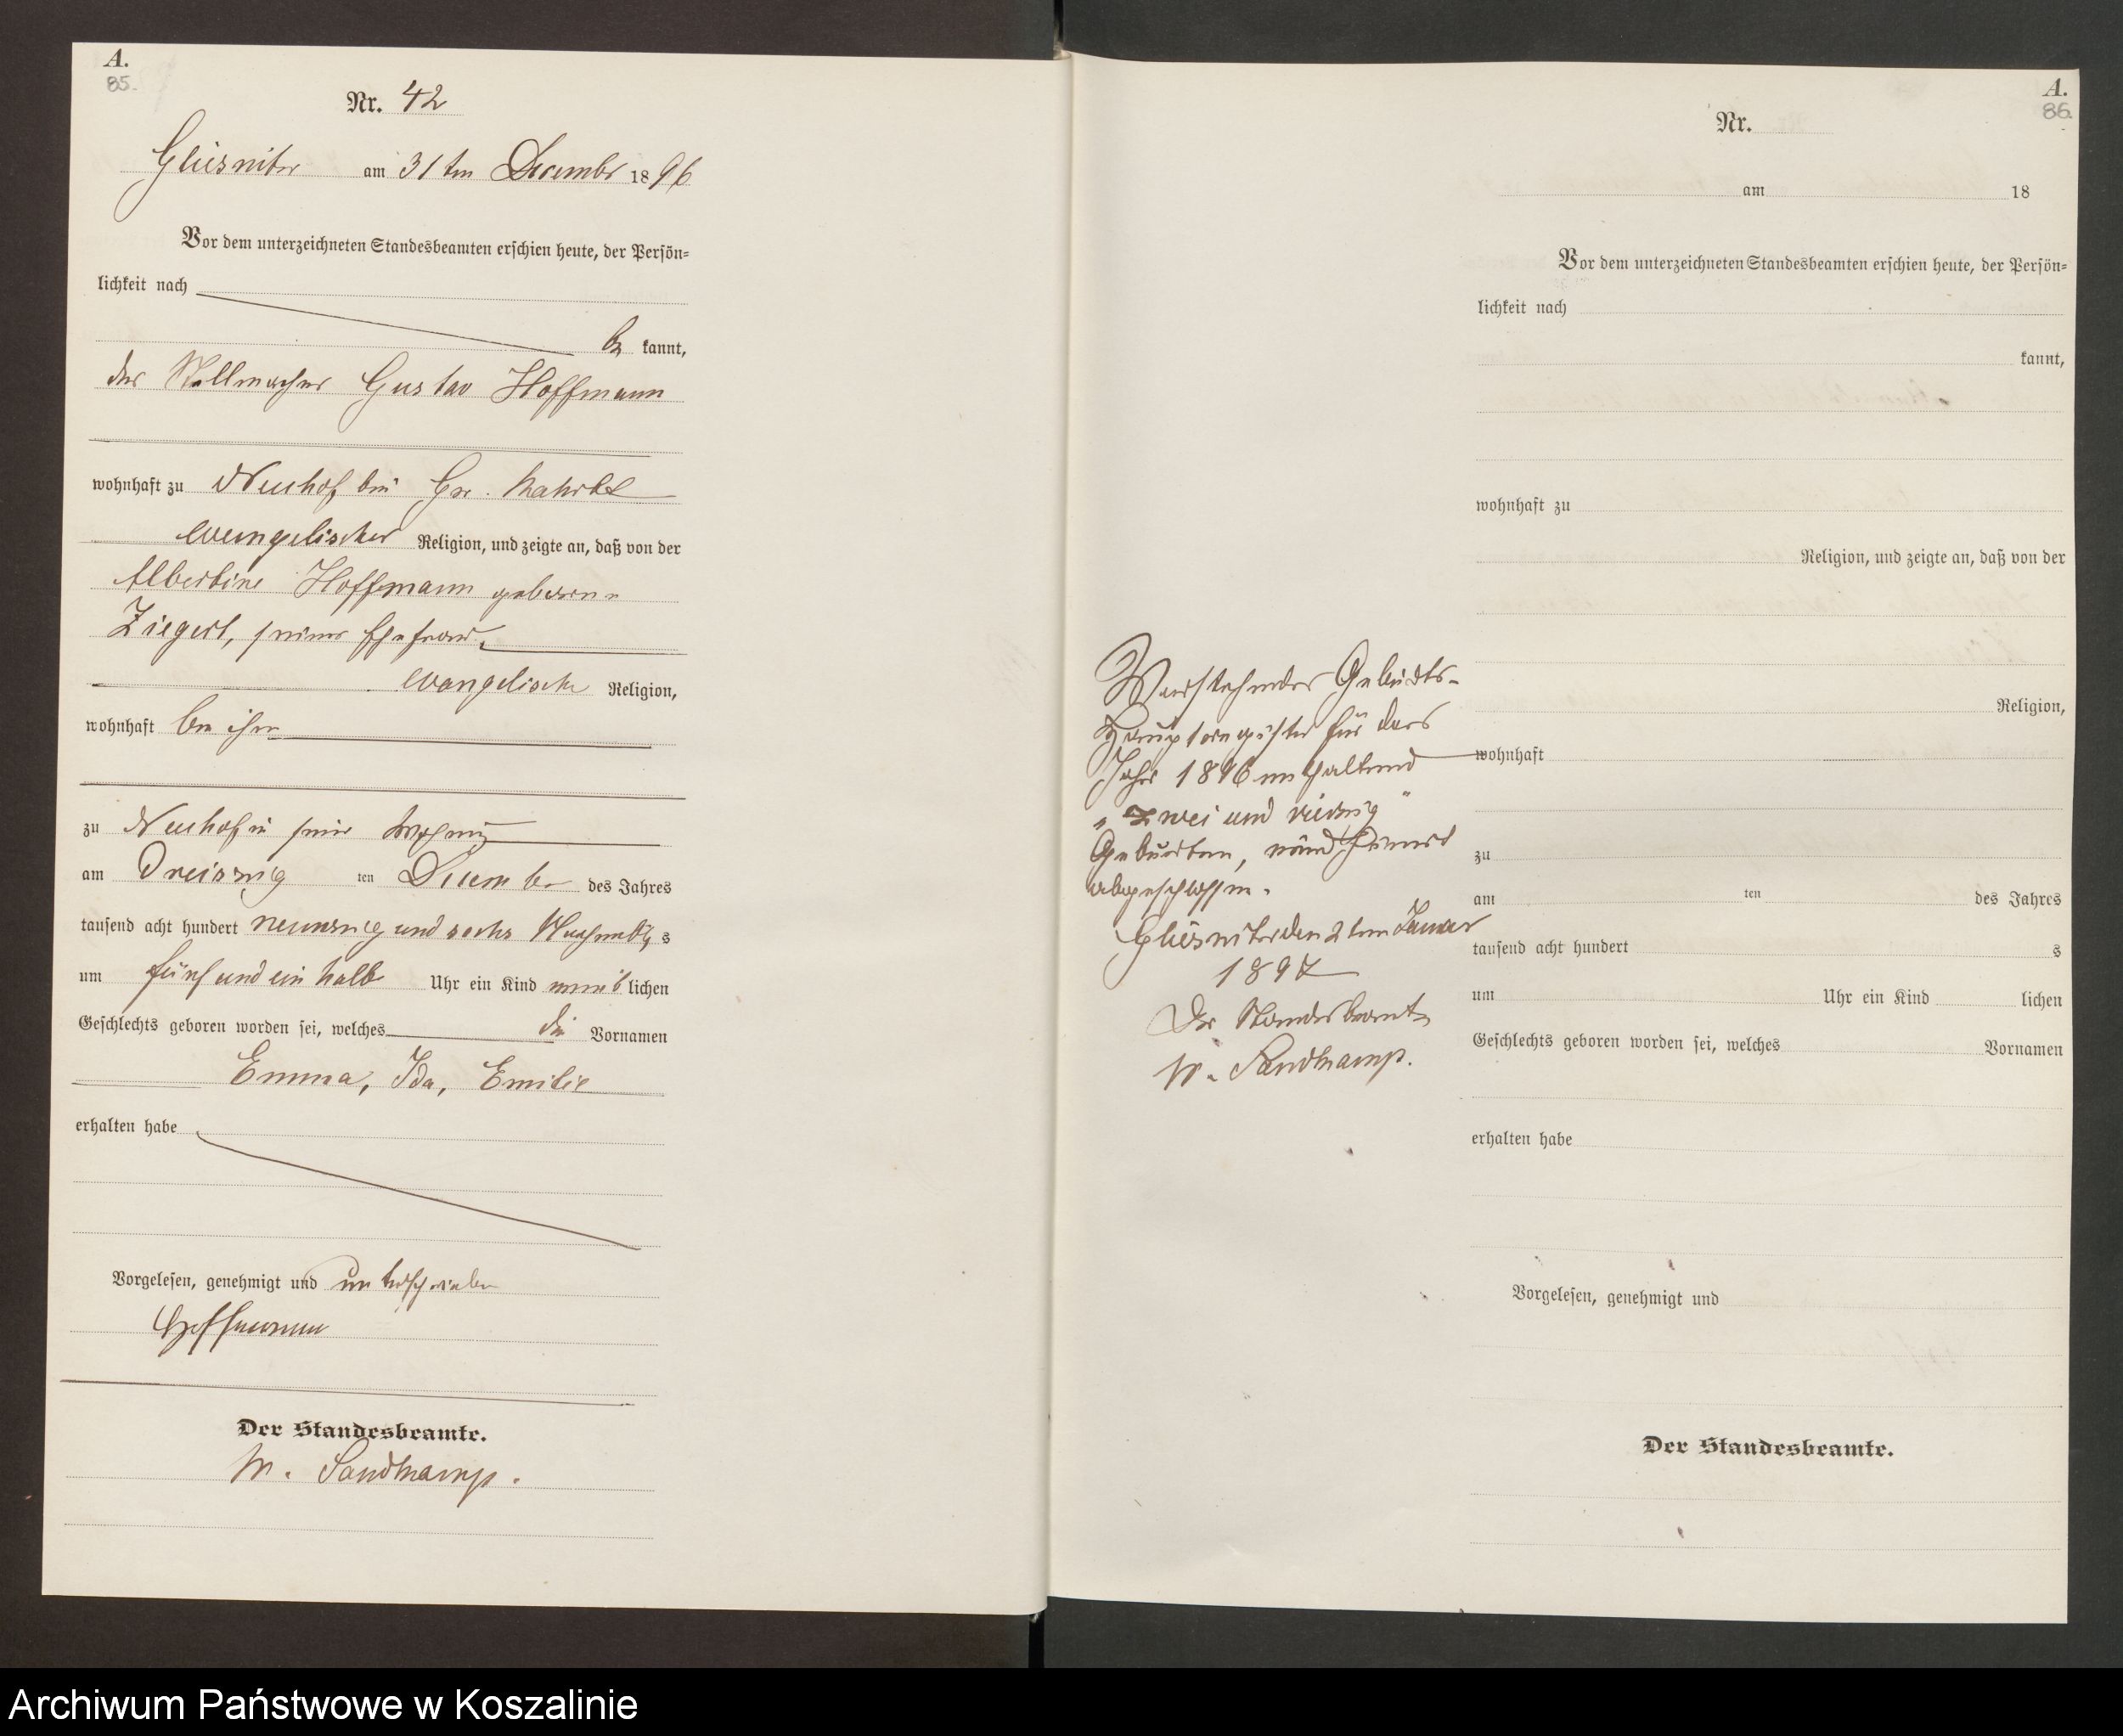 A.
85.
Nr. 42
Glüsnitz am 31ten December 1896
Vor dem unterzeichneten Standesbeamten erschien heute, der Persön=
lichkeit nach
be kannt,
der Stellmacher Gustav Hoffmann
wohnhaft zu Neuhof bei Gr.
evangelischer Religion, und zeigte an, daß von der
Albertine Hoffmann geborene
Ziegert, seiner Ehefrau,
evangelische Religion,
wohnhaft bei ihm
zu Neuhof in seiner Wohnung
am Dreiszig ten December des Jahres
tausend acht hundert neunzig und sechs Nachmittags
um fünf und ein halb Uhr ein Kind weib lichen
Geschlechts geboren worden sei, welches die Vornamen
Emma, Ida, Emilie
erhalten habe
Vorgelesen, genehmigt und unterschrieben
Hoffmann
Der Standesbeamte.
W. Sandkamp.
A.
86.
Nr.
am 18
Vor dem unterzeichneten Standesbeamten erschien heute, der Persön=
lichkeit nach
kannt,
wohnhaft zu
Religion, und zeigte an, daß von der
Vorstehendes Geburts-
Hauptregister für das
Jahr 1896 enthaltend
"zwei und vierzig"
Geburten, wird hiermit
abgeschlossen.
Glüsnitz den 2ten Januar
1897
Der Standesbeamte
W. Sandkamp.
Religion,
wohnhaft
zu
am ten des Jahres
tausend acht hundert s
um Uhr ein Kind lichen
Geschlechts geboren worden sei, welches Vornamen
erhalten habe
Vorgelesen, genehmigt und
Der Standesbeamte.
Archiwum Państwowe w Koszalinie